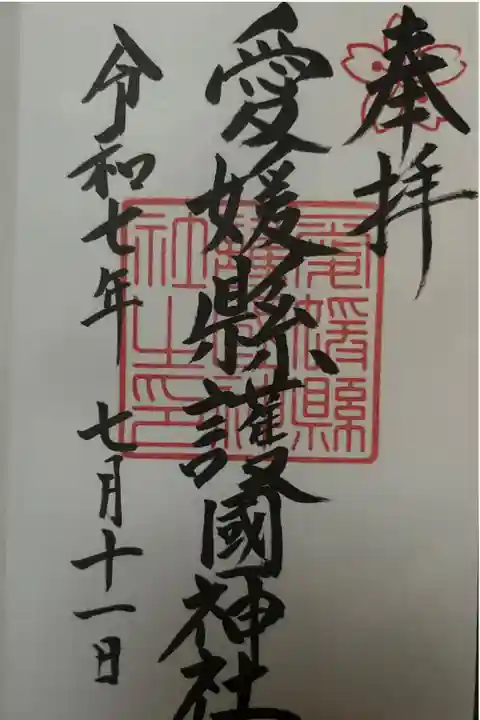 奉拝
愛媛縣護國神社
愛媛縣
護國神
社之印
令和七年 七月十一日